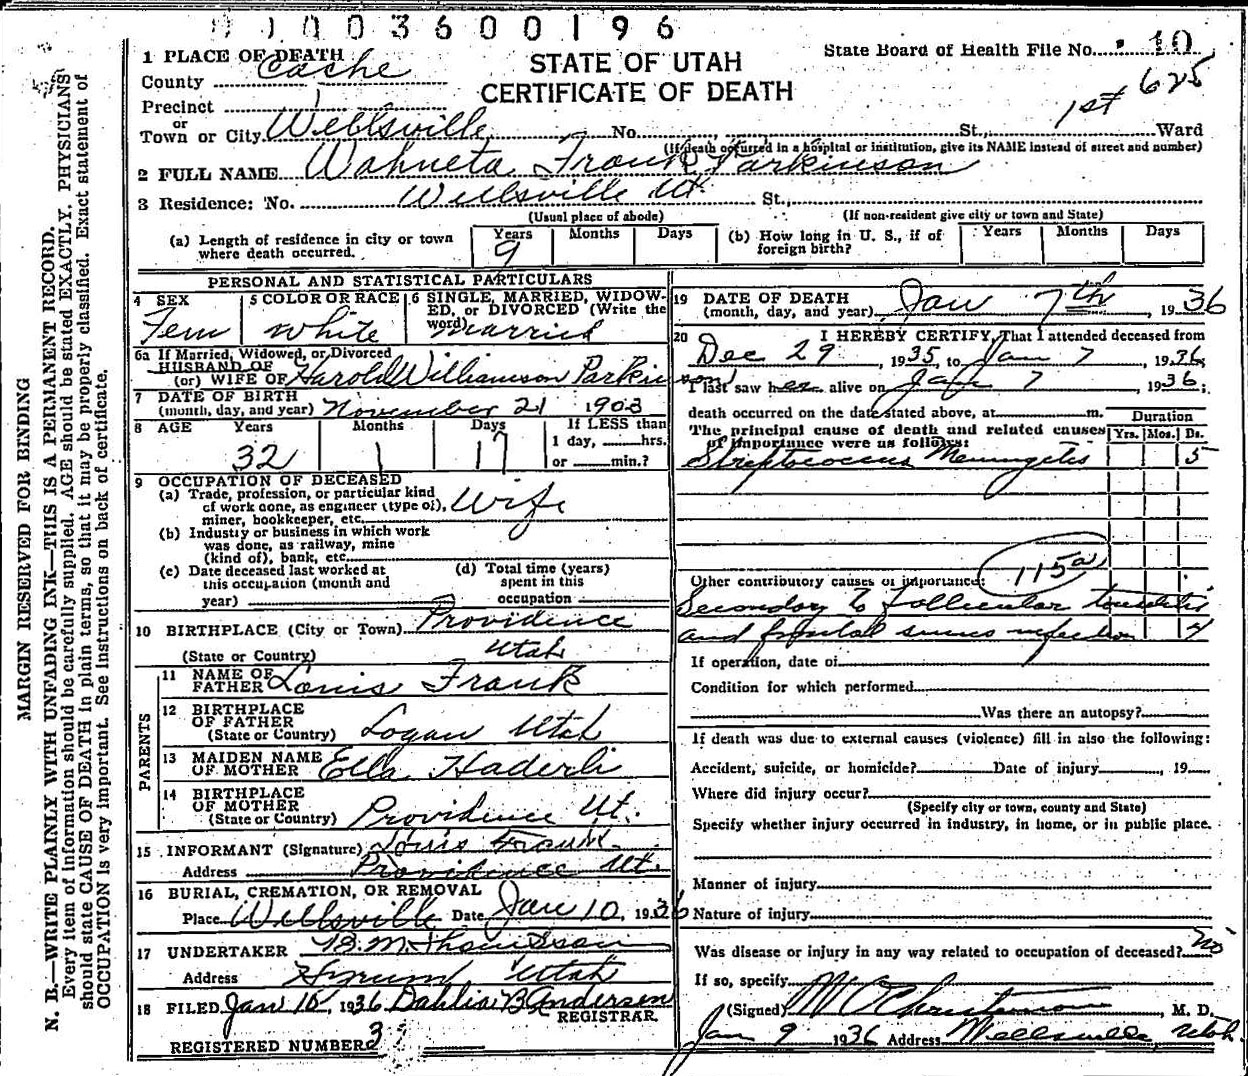 0 1 0 0 3 6 0 0 1 9 6
State Board of Health File No. 10
625
STATE OF UTAH
CERTIFICATE OF DEATH
1 PLACE OF DEATH
County Cache
Precinct 1
or
Town or City Wellsville No. St., 1st Ward
(If death occurred in a hospital or institution, give its NAME instead of street and number)
2 FULL NAME Wahneta Frank Parkinson
3 Residence: No. Wellsville Ut. St.,
(Usual place of abode) (If non-resident give city or town and State)
(a) Length of residence in city or town where death occurred. Years 9 Months Days
(b) How long in U. S., if of foreign birth? Years Months Days
PERSONAL AND STATISTICAL PARTICULARS
4 SEX Fem
5 COLOR OR RACE white
6 SINGLE, MARRIED, WIDOWED, or DIVORCED (Write the word) married
6a If Married, Widowed, or Divorced
HUSBAND OF
(or) WIFE OF Harold Williamson Parkinson
7 DATE OF BIRTH
(month, day, and year) November 21 1903
8 AGE Years 32 Months 1 Days 17
If LESS than
1 day, hrs.
or min.?
9 OCCUPATION OF DECEASED
(a) Trade, profession, or particular kind
of work done, as engineer (type of),
miner, bookkeeper, etc. Wife
(b) Industry or business in which work
was done, as railway, mine
(kind of), bank, etc.
(c) Date deceased last worked at
this occupation (month and
year)
(d) Total time (years)
spent in this
occupation
10 BIRTHPLACE (City or Town) Providence
(State or Country) Utah
PARENTS
11 NAME OF
FATHER Louis Frank
12 BIRTHPLACE
OF FATHER
(State or Country) Logan Utah
13 MAIDEN NAME
OF MOTHER Ella Haderli
14 BIRTHPLACE
OF MOTHER
(State or Country) Providence Ut.
15 INFORMANT (Signature) Louis Frank
Address Providence Ut.
16 BURIAL, CREMATION, OR REMOVAL
Place Wellsville Date Jan 10, 1936
17 UNDERTAKER B. M. Thompson
Address Hyrum Utah
18 FILED Jan 10, 1936 Dahlia B Andersen
REGISTRAR.
REGISTERED NUMBER 3
19 DATE OF DEATH
(month, day, and year) Jan 7th, 1936
20 I HEREBY CERTIFY, That I attended deceased from
Dec 29, 1935, to Jan 7, 1936,
I last saw her alive on Jan 7 1936;
death occurred on the date stated above, at m.
The principal cause of death and related causes
of importance were as follows:
Duration
Yrs. Mos. Ds.
Streptococcus Meningitis 5
115a
Other contributory causes of importance:
Secondary to Follicular tonsilitis
and frontal sinus infection 4
If operation, date of
Condition for which performed
Was there an autopsy?
If death was due to external causes (violence) fill in also the following:
Accident, suicide, or homicide? Date of injury , 19
Where did injury occur?
(Specify city or town, county and State)
Specify whether injury occurred in industry, in home, or in public place.
Manner of injury
Nature of injury
Was disease or injury in any way related to occupation of deceased? no
If so, specify
(Signed) W O Christensen, M. D.
Jan 9 1936 Address Wellsville, Utah.
MARGIN RESERVED FOR BINDING
N. B.—WRITE PLAINLY WITH UNFADING INK—THIS IS A PERMANENT RECORD.
Every item of information should be carefully supplied. AGE should be stated EXACTLY. PHYSICIANS
should state CAUSE OF DEATH in plain terms, so that it may be properly classified. Exact statement of
OCCUPATION is very important. See instructions on back of certificate.